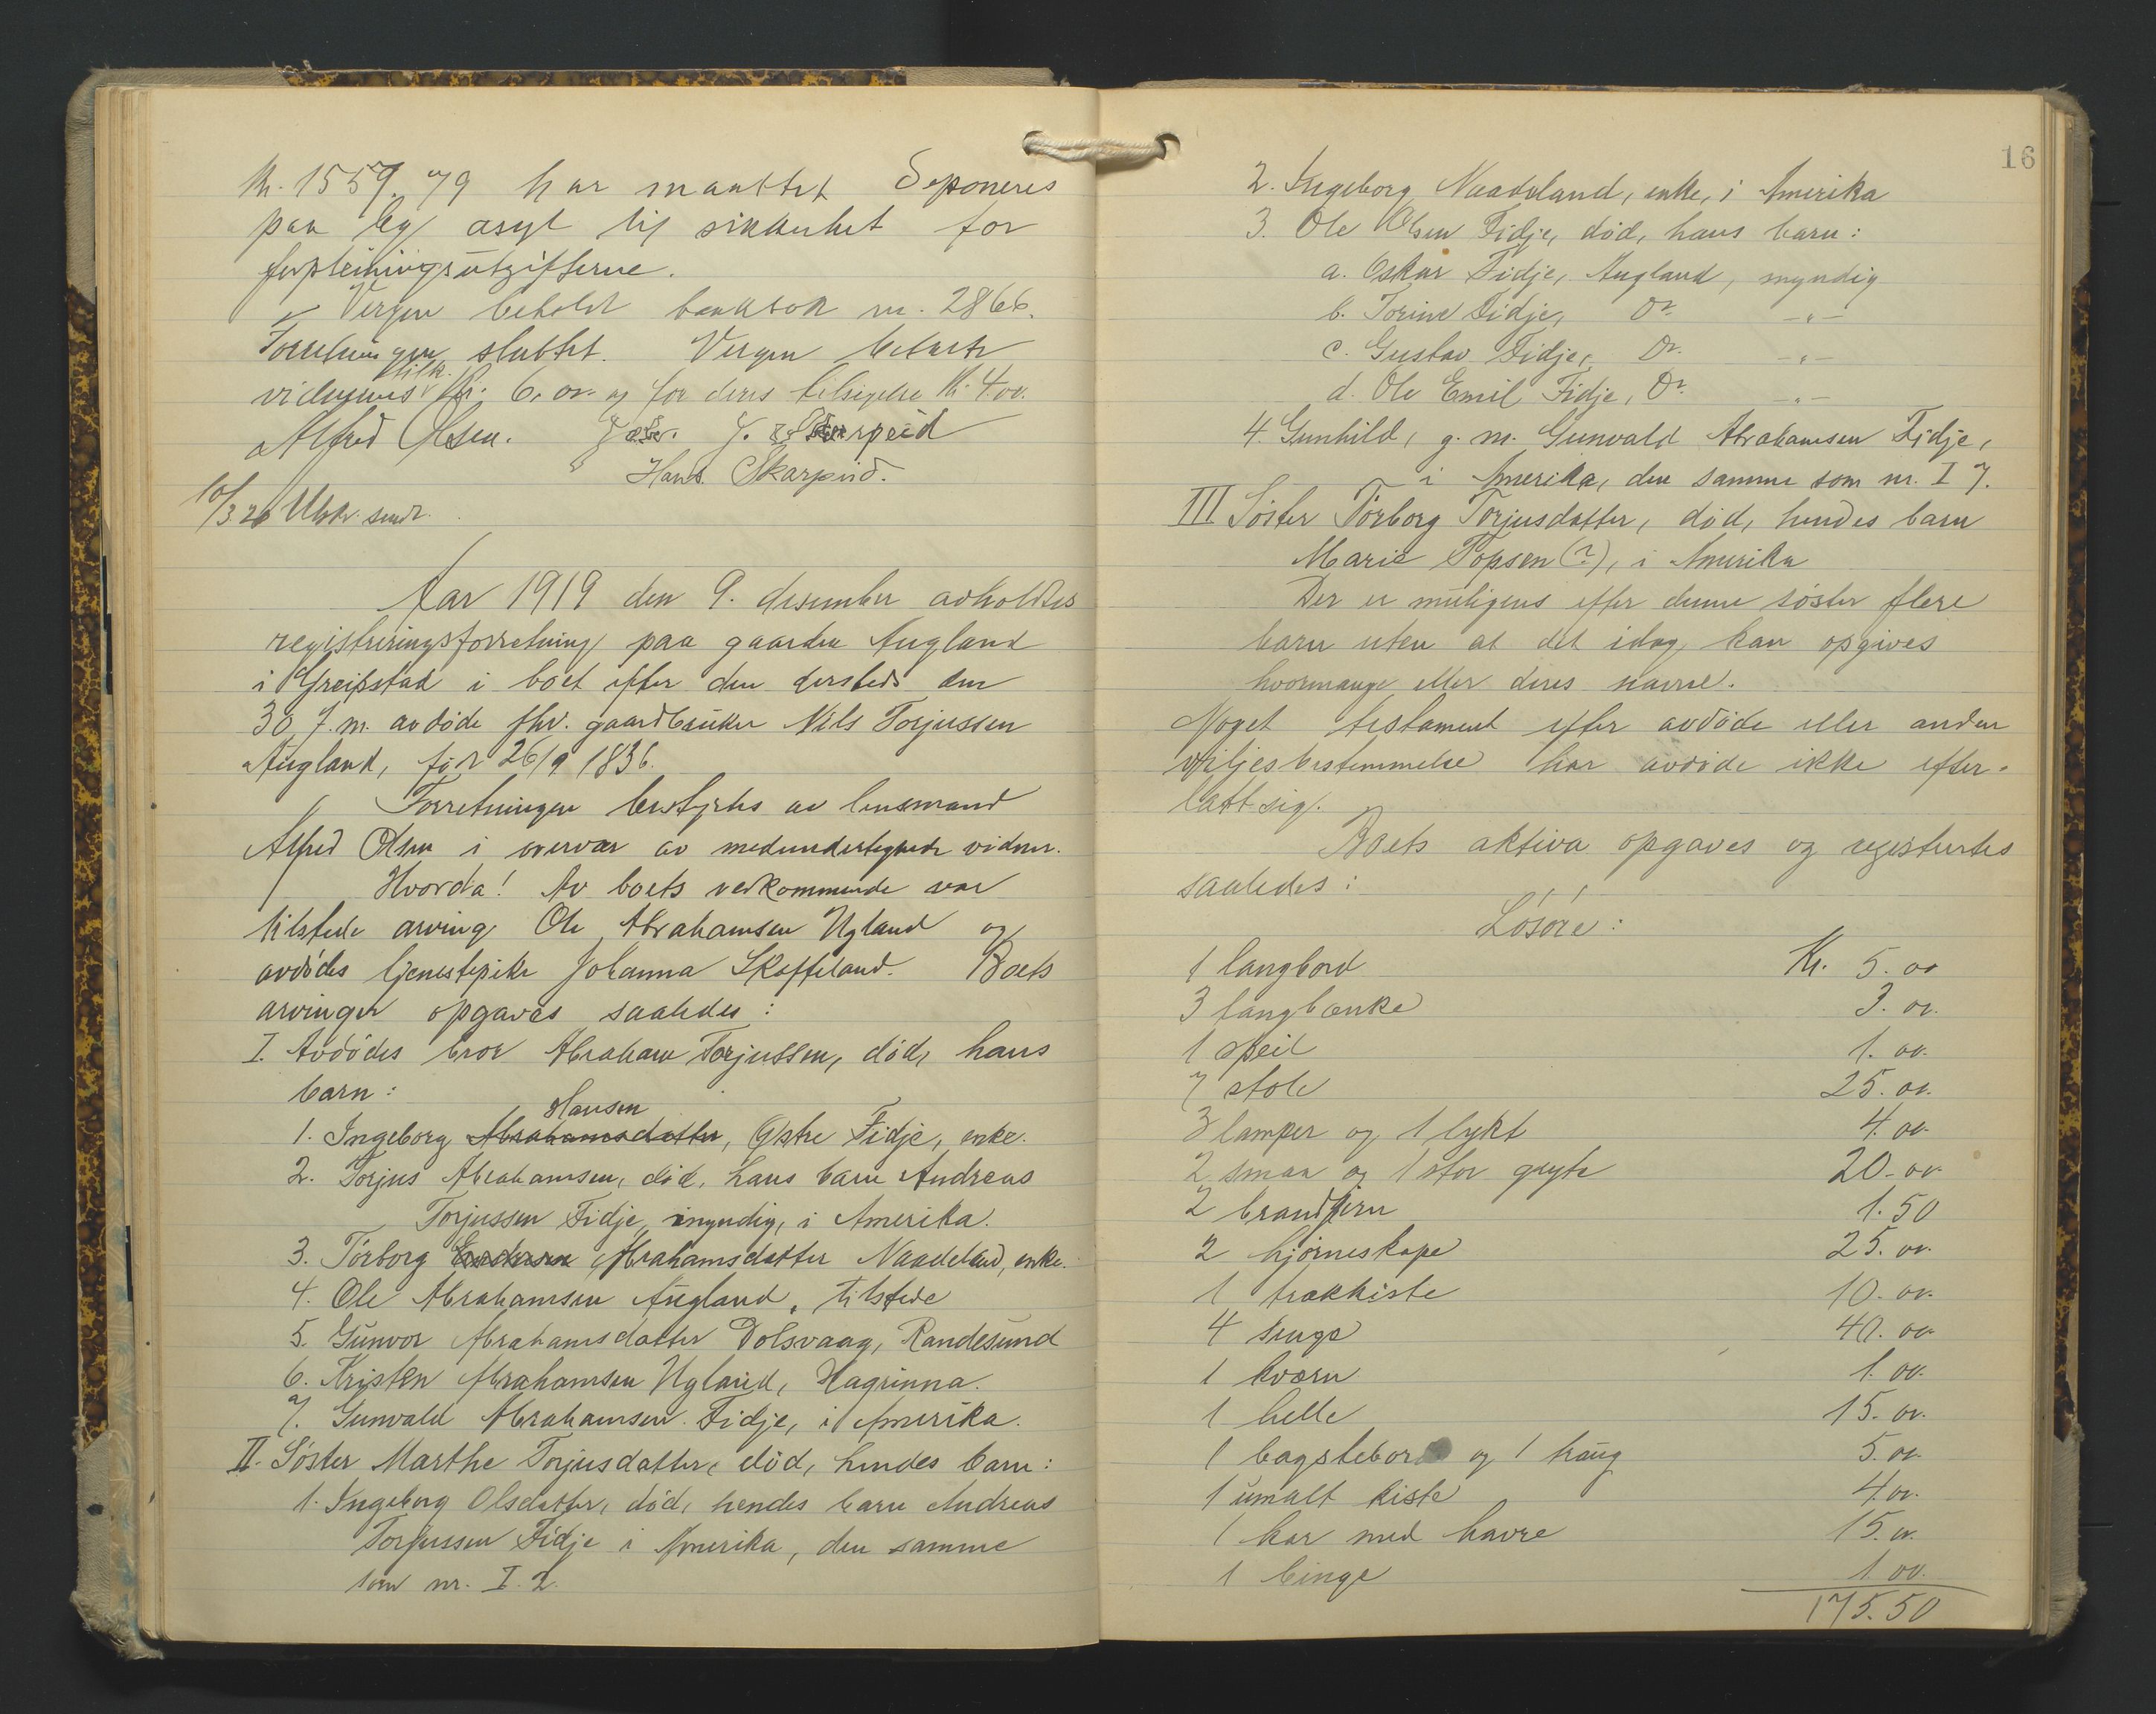 Kr. 1559.79 har maattet deponeres
paa Eg asyl til sikkerhet for
forpleiningsutgifterne.
Vergen beholdt bankbok nr. 2866.
Forretningen sluttet. Vergen betalte
vidnernes tilk. kr. 6.00 og for deres tilsigelse kr. 4.00.
Alfred Olsen. J. Skarpeid
Hans Skarpeid.
10/3 20 Utskr. sendt.
Aar 1919 den 9. desember avholdtes
registreringsforretning paa gaarden Augland
i Greipstad i boet efter den dersteds den
30 f.m. avdøde fhv. gaardbruker Nils Torjussen
Augland, før 26/9 1836.
Forretningen bestyrtes av lensmand
Alfred Olsen i overvær av medundertegnede vidner.
Hvorda! Av boets vedkommende var
tilstede arving Ole Abrahamsen Ugland og
avdødes tjenestepike Johanna Skaffeland. Boets
arvinger opgaves saaledes:
I. Avdødes bror Abraham Torjussen, død, hans
barn:
Hansen
1. Ingeborg Abrahamsdatter, Østre Fidje, enke.
2. Torjus Abrahamsen, død, hans barn Andreas
Torjussen Fidje, myndig, i Amerika.
3. Torborg Abrahamsdatter Naadeland, enke.
4. Ole Abrahamsen Augland, tilstede
5. Gunvor Abrahamsdatter Dolsvaag, Randesund
6. Kristen Abrahamsen Ugland, Hagrinna.
7. Gunvald Abrahamsen Fidje, i Amerika.
II. Søster Marthe Torjusdatter, død, hendes barn:
1. Ingeborg Olsdatter, død, hendes barn Andreas
Torjussen Fidje i Amerika, den samme
som nr. I. 2.
16
2. Ingeborg Naadeland, enke, i Amerika
3. Ole Olsen Fidje, død, hans barn:
a. Oskar Fidje, Augland, myndig
b. Torine Fidje, Do. -"-
c. Gustav Fidje, Do. -"-
d. Ole Emil Fidje, Do. -"-
4. Gunhild, g. m. Gunvald Abrahamsen Fidje,
i Amerika, den samme som nr. I 7.
III Søster Torborg Torjusdatter, død, hendes barn
Marie Topsen (?), i Amerika
Der er muligens efter denne søster flere
barn uten at det idag kan opgives
hvormange eller deres navne.
Noget testament efter avdøde eller anden
viljesbestemmelse har avdøde ikke efter-
latt sig.
Boets aktiva opgaves og registertes
saaledes:
Løsøre:
1 langbord Kr. 5.00
3 langbænke 3.00
1 speil 1.00
7 stole 25.00
3 lamper og 1 lykt 4.00
2 smaa og 1 stor gryte 20.00
2 brandjern 1.50
2 hjørneskape 25.00
1 trækkiste 10.00
4 senge 40.00
1 kværn 1.00
1 helle 15.00
1 bagstebord og 1 traug 5.00
1 umalt kiste 4.00
1 kar med havre 15.00
1 binge 1.00
175.50